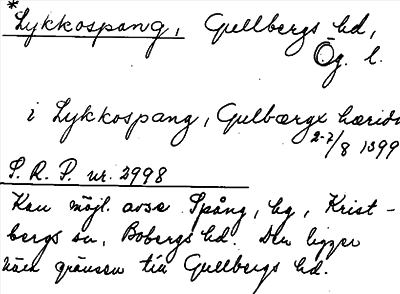 *Lykkospang, Gullbergs hd,
Ög. l.
i Lykkospang, Gulbærgx hæridæ
2-7/8 1399
S. R. P. nr. 2998
Kan möjl. avse Spång, hg, Krist-
bergs sn, Bobergs hd. Den ligger
nära gränsen till Gullbergs hd.